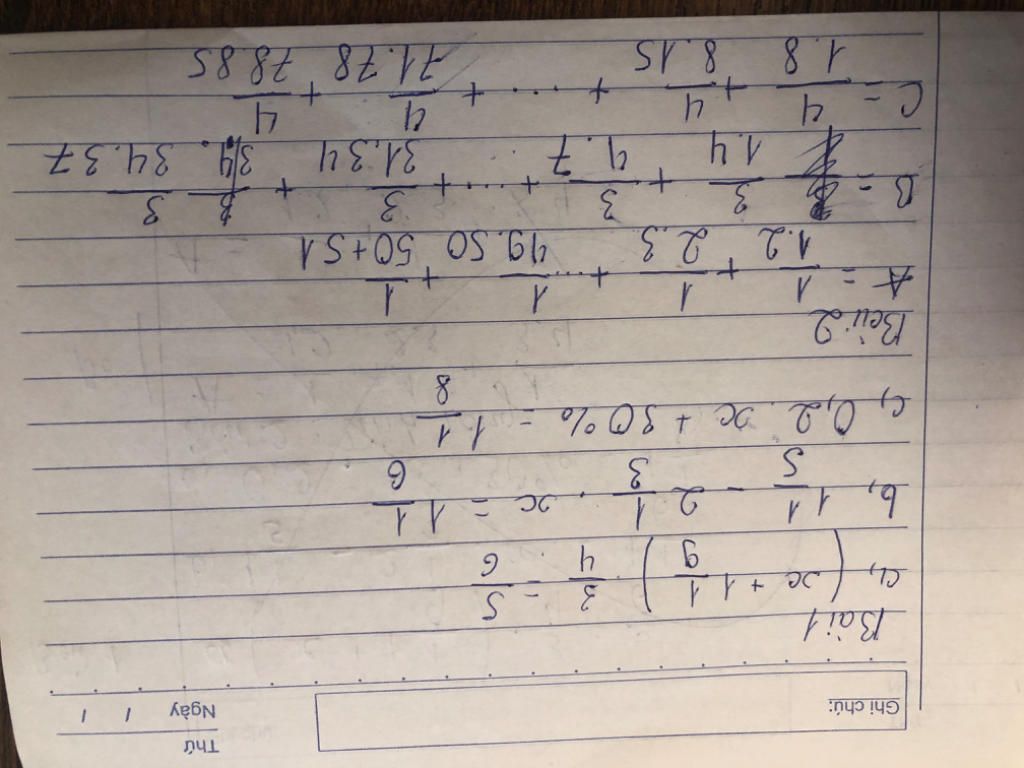 Thứ
Ghi chú: Ngày / /
Bài 1
a, (x + 1 1/9) . 3/4 = 5/6
b, 1 1/5 - 2 1/3 . x = 1 1/6
c, 0,2 . x + 30% = 1 1/8
Bài 2
A = 1/1.2 + 1/2.3 + ... 1/49.50 + 1/50+51
B = 3/1.4 + 3/4.7 + ... + 3/31.34 + 3/34.37
C = 4/1.8 + 4/8.15 + ... + 4/71.78 + 4/78.85